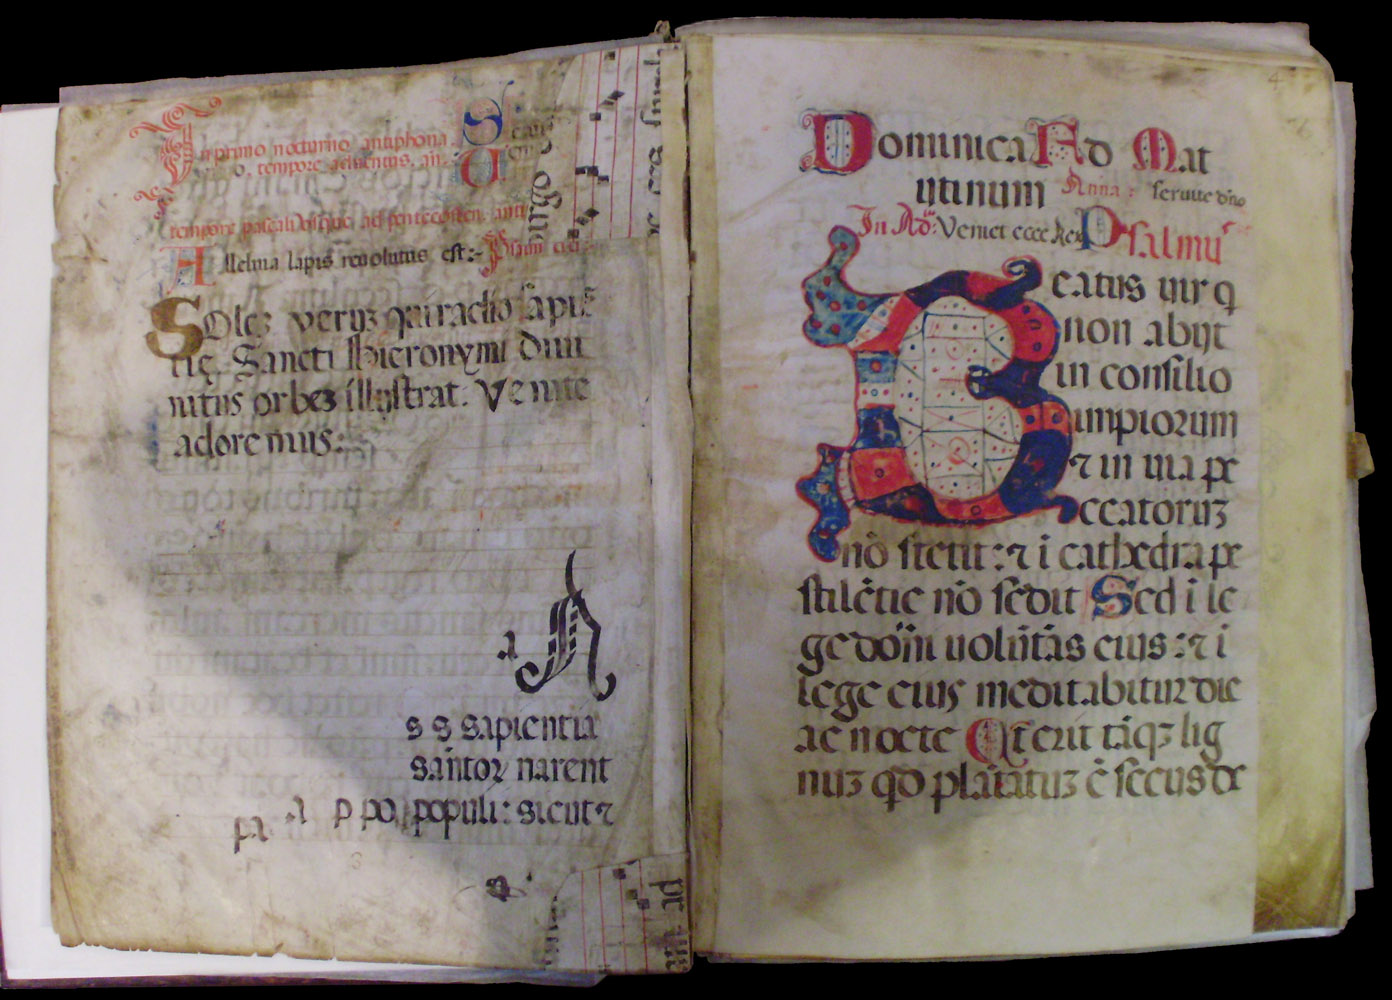 In primo nocturno antiphona. S ecun
o. tempore aduentus. an. U eni
tempore pascali usque ad pentecosten. anti
Alleluia lapis reuolutus est:- Psalm
Solez veruz qui radio sapiē
tię. Sancti Hieronymi diui
nitus orbez illustrat. Venite
adoremus:
a A
s s sapientia
sāntoꝝ narent
pa a p po populi: sicut ⁊
Dominica Ad Mat
utinum Anna: seruite dño
In Adū Veniet ecce Rex Psalmu
Beatus uir q
non abijt
in consilio
impiorum
⁊ in uia pe
ccatoruz
nō stetit: ⁊ ī cathedra pe
stilētie nō sedit Sed ī le
ge doīni uolūtās eius: ⁊ ī
lege eius meditabitur die
ac nocte Et erit tāqꝫ lig
nuz qd plātatuz ē secus de